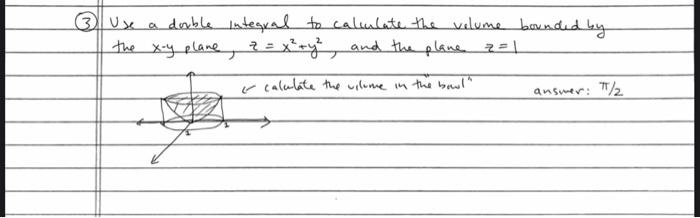 ③ Use a double integral to calculate the volume bounded by
the x-y plane, z = x²+y², and the plane z=1
calculate the volume in the "bowl"
answer: π/2
1 1